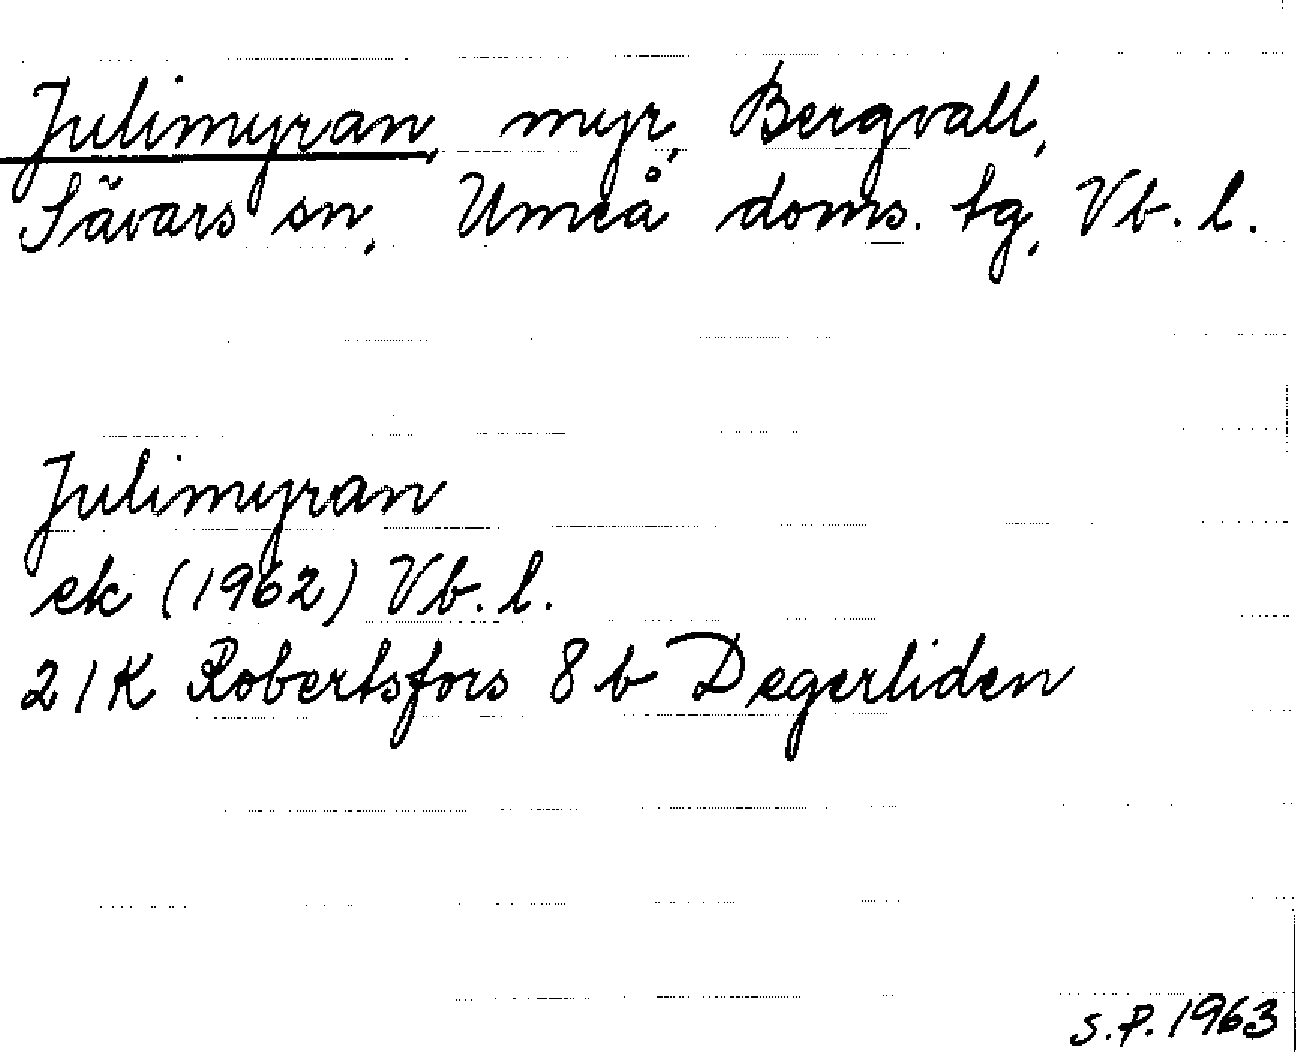 Julimyran, myr, Bergvall,
Sävars sn, Umeå doms. tg, Vb. l.
Julimyran
ek (1962) Vb. l.
21K Robertsfors 8 b Degerliden
S.P. 1963